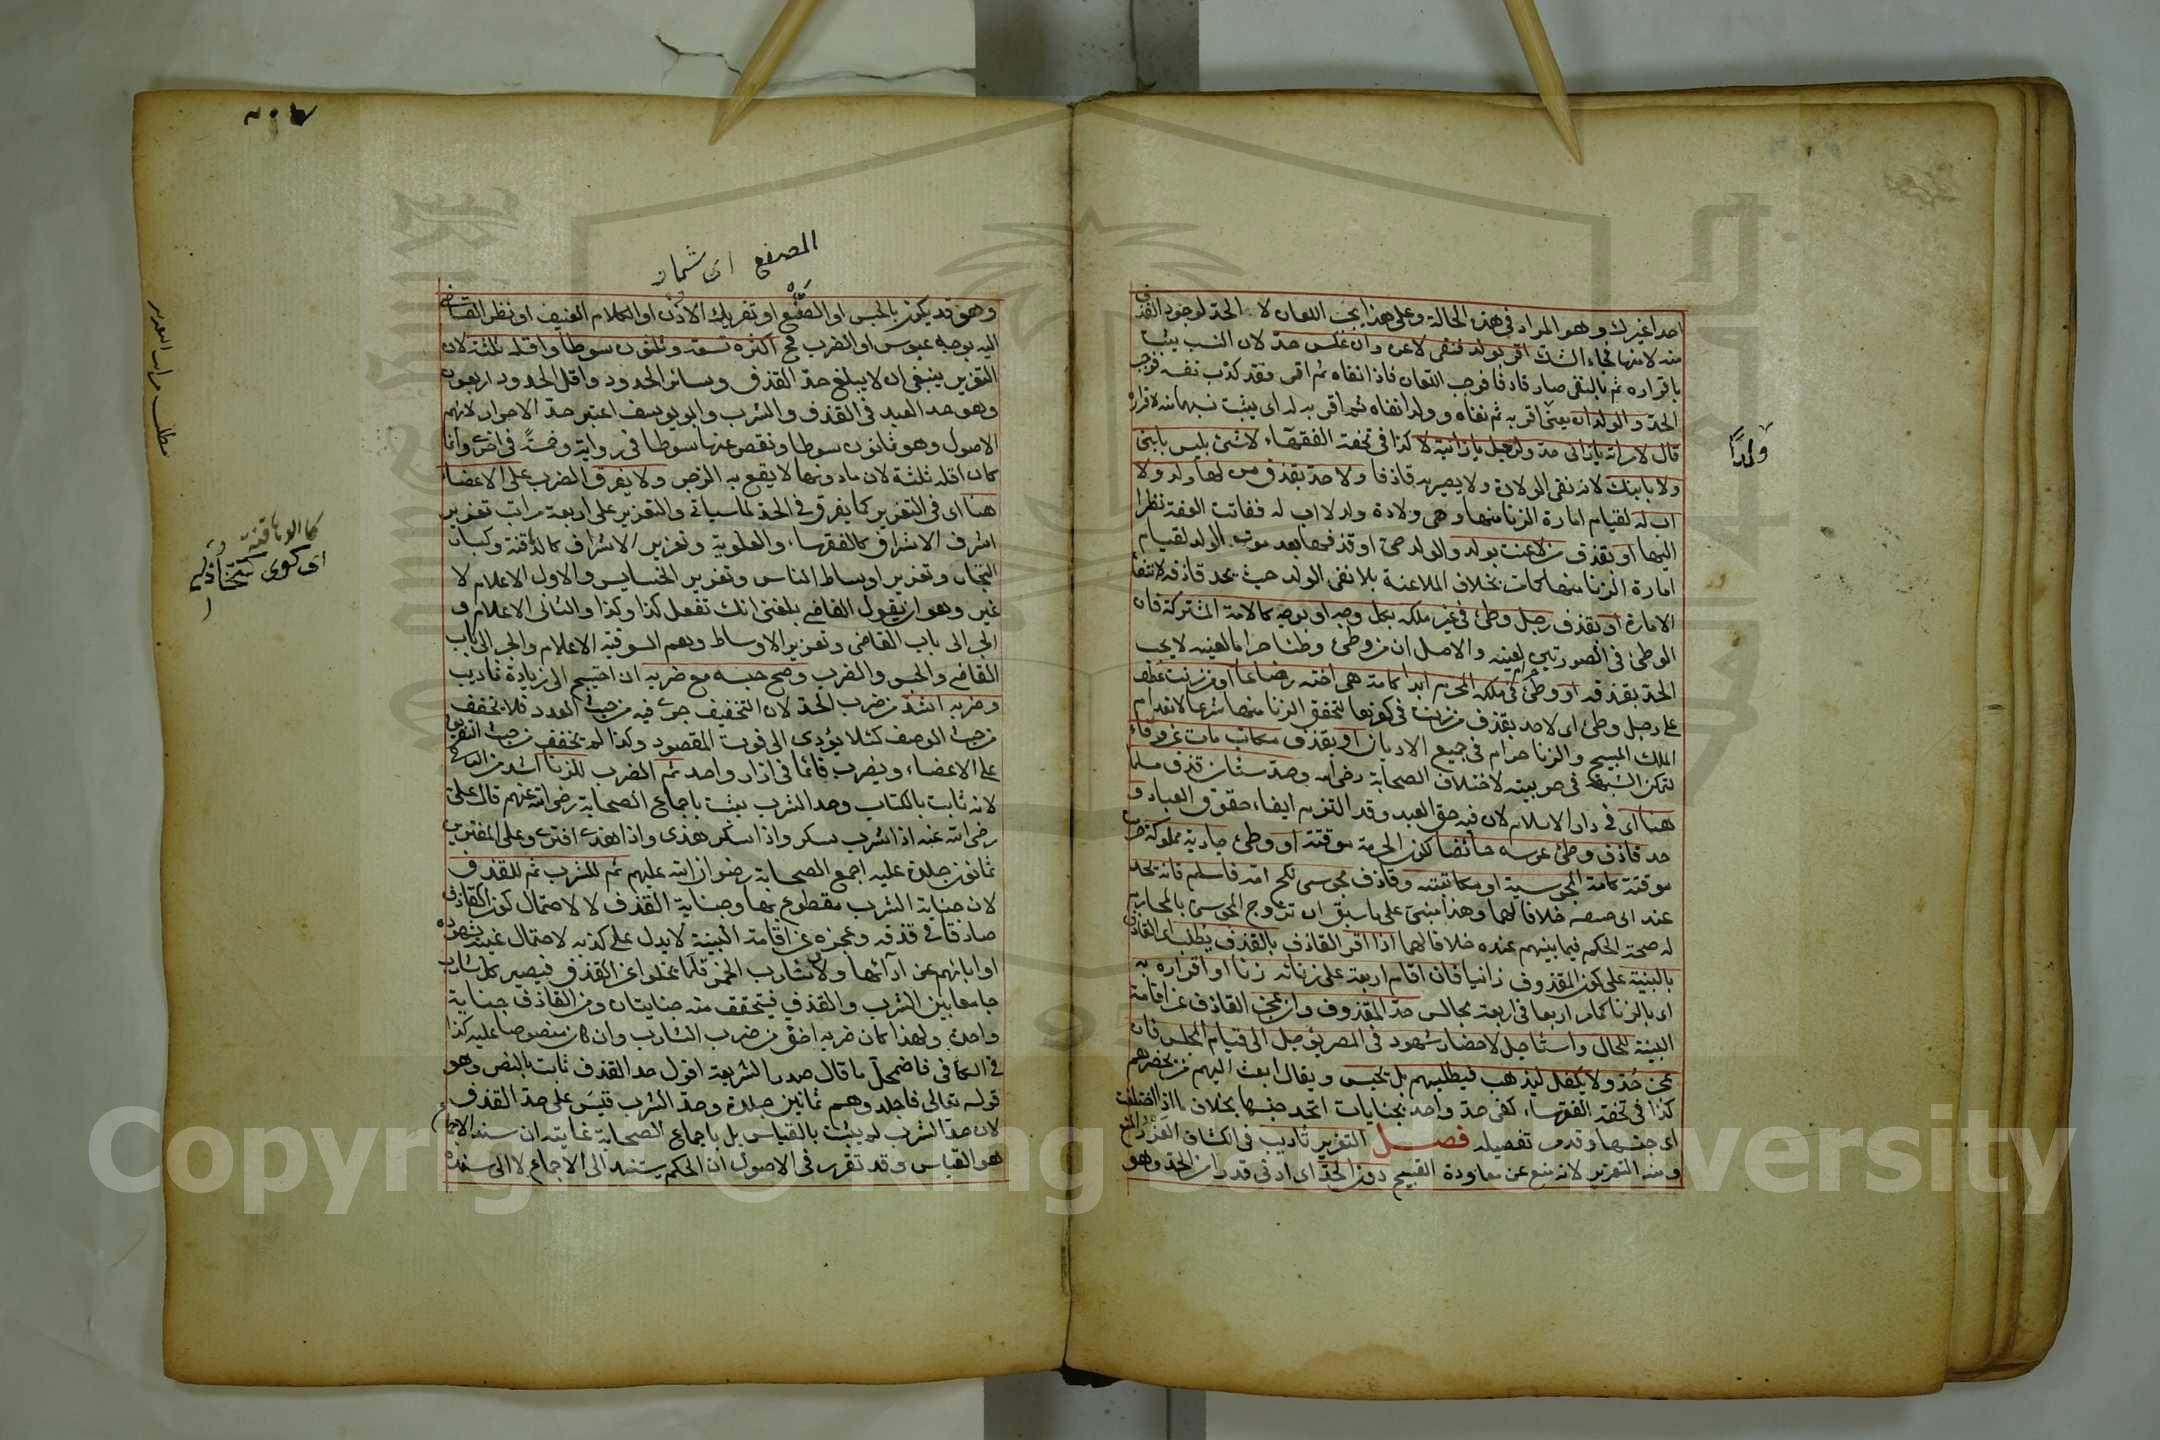 احدا غيرك وهو المراد في هذه الحالة وعلى هذا يجب اللعان لا الحد لوجود القذف
منه لا منها فجاء الشك اقر بولد فنفى لاعن وان عكس حد لان النسب يثبت
باقراره ثم بالنفى صار قاذفا فوجب اللعان فاذا نفاه ثم اقر فقد كذب نفسه فوجب
الحد والولد ان يعنى اقر به ثم نفاه وولد نفاه ثم اقر به له اى يثبت نسبهما منه لاقراره
قال لامراته يا زانى حد ولرجل يا زانية لا كذا في تحفة الفقهاء لا شئ بليس بابنى
ولا بابنك لانه نفى الولادة ولا يصير به قاذفا ولا حد بقذف من لها ولد ولا
اب له لقيام امارة الزنا منها وهى ولادة ولد لا اب له ففاتت العفة نظرا
اليها او بقذف من لاعنت بولد والولد حى او قذفها بعد موت الولد لقيام
امارة الزنا منها بخلاف الملاعنة بلا نفى الولد حيث يحد قاذفه لانتفاء
الامارة او بقذف رجل وطئ في غير ملكه بكل وجه او بوجه كالامة المشتركة فان
الوطئ في الصورتين لعينه والاصل ان من وطئ وطئا حراما لعينه لا يجب
الحد بقذفه او وطئ في ملكه المحرم ابدا كامة هى اخته رضاعا او من زنت عطف
على رجل وطئ اى لا حد بقذف من زنت في كفرها لتحقق الزنا منها شرعا لانعدام
الملك المبيح والزنا حرام في جميع الاديان او بقذف مكاتب مات عن وفاء
لتمكن الشبهة في حريته لاختلاف الصحابة رضى الله وحد مستامن قذف مسلما
هنا اى في دار الاسلام لان فيه حق العبد وقد التزم ايفاء حقوق العباد و
حد قاذف وطئ عرسه حائضا كون الحرمة موقتة او وطئ جارية مملوكة حرمت
موقتة كامة المجوسية او مكاتبته وقاذف مجوسى نكح امه فاسلم فانه يحد
عند ابى حنيفه خلافا لهما وهذا مبنى على ما سبق ان تزوج المجوسى بالمحارم
له صحة الحكم فيما بينهم عنده خلافا لهما اذا اقر القاذف بالقذف يطلب اى القاذف
بالبينة على كون المقذوف زانيا فان اقام اربعة على زناه او اقراره به
اى بالزنا كما مر اربعا في اربعة مجالس حد المقذوف وان عجز القاذف عن اقامة
البينة للحال واستاجل لاحضار شهود في المصر يؤجل الى قيام المجلس فان
عجز حد ولا يكفل ليذهب فيطلبهم بل يحبس ويقال ابعث اليهم من يحضرهم
كذا في تحفة الفقهاء كفى حد واحد بجنايات اتحد جنسها بخلاف ما اذا اختلفت
اى جنسها وقد مر تفصيله فصل التعزير تاديب في الكشاف العزر المنع
ومنه التعزير لانه منع عن معاودة القبيح دون الحد اى ادنى قدرا من الحد وهو
ولدًا
المصفع اى شمار
وهو قد يكون بالحبس او الصفع او تعريك الاذن او الكلام العنيف او نظر القاضى
اليه بوجه عبوس او الضرب فح اكثره تسعة وثلثون سوطا واقله ثلثة لان
التعزير ينبغى ان لا يبلغ حد القذف وسائر الحدود واقل الحدود اربعون
وهو حد العبد في القذف والشرب وابو يوسف اعتبر حد الاحرار لانهم
الاصول وهو ثمانون سوطا ونقص عنها سوطا في رواية وخمسة في اخرى وانما
كان اقله ثلثة لان ما دونها لا يقع به الزجر ولا يفرق الضرب على الاعضاء
هنا اى في التعزير كما يفرق في الحد لما سياتى والتعزير على اربعة مراتب تعزير
اشرف الاشراف كالفقهاء والعلوية وتعزير الاشراف كالدهاقنة وكبار
التجار وتعزير اوساط الناس وتعزير الخسايس والاول الاعلام لا
غير وهو ان يقول القاضى بلغنى انك تفعل كذا وكذا والثانى الاعلام و
الجر الى باب القاضى وتعزير الاوساط وهم السوقية الاعلام والجر الى باب
القاضى والحبس والضرب وصح حبسه مع ضربه ان احتيج الى زيادة تاديب
وضربه اشد من ضرب الحد لان التخفيف جرى فيه من حيث العدد فلا يخفف
من حيث الوصف كيلا يؤدى الى فوت المقصود وكذا لم يخفف من حيث التفريق
على الاعضاء ويضرب قائما في ازار واحد ثم الضرب للزنا اشد من الباقى
لانه ثابت بالكتاب وحد الشرب يثبت باجماع الصحابة رضى الله عنهم قال على
رضى الله عنه اذا شرب سكر واذا سكر هذى واذا هذى افترى وعلى المفترين
ثمانون جلدة عليه اجمع الصحابة رضوان الله عليهم ثم للشرب ثم للقذف
لان جناية الشرب مقطوع بها وجناية القذف لا لاحتمال كون القاذف
صادقا في قذفه وعجزه عن اقامة البينة لا يدل على كذبه لاحتمال غيبة شهوده
او ابائهم عن ادائها ولان شارب الخمر قلما يخلو عن القذف فيصير كل شارب
جامعا بين الشرب والقذف فيتحقق منه جنايتان ومن القاذف جناية
واحدة ولهذا كان ضربه اخف من ضرب الشارب وان كان منصوصا عليه كذا
في الكافى فاضمحل ما قال صدر الشريعة اقول حد القذف ثابت بالنص وهو
قوله تعالى فاجلدوهم ثمانين جلدة وحد الشرب قيس على حد القذف
لان حد الشرب لم يثبت بالقياس بل باجماع الصحابة غايته ان سند الاجماع
هو القياس وقد تقرر في الاصول ان الحكم يستند الى الاجماع لا الى سنده
مطلب مراتب التعزير
كالدهاقنة
اى كوى كتخدالرى
Copyright © King Saud University